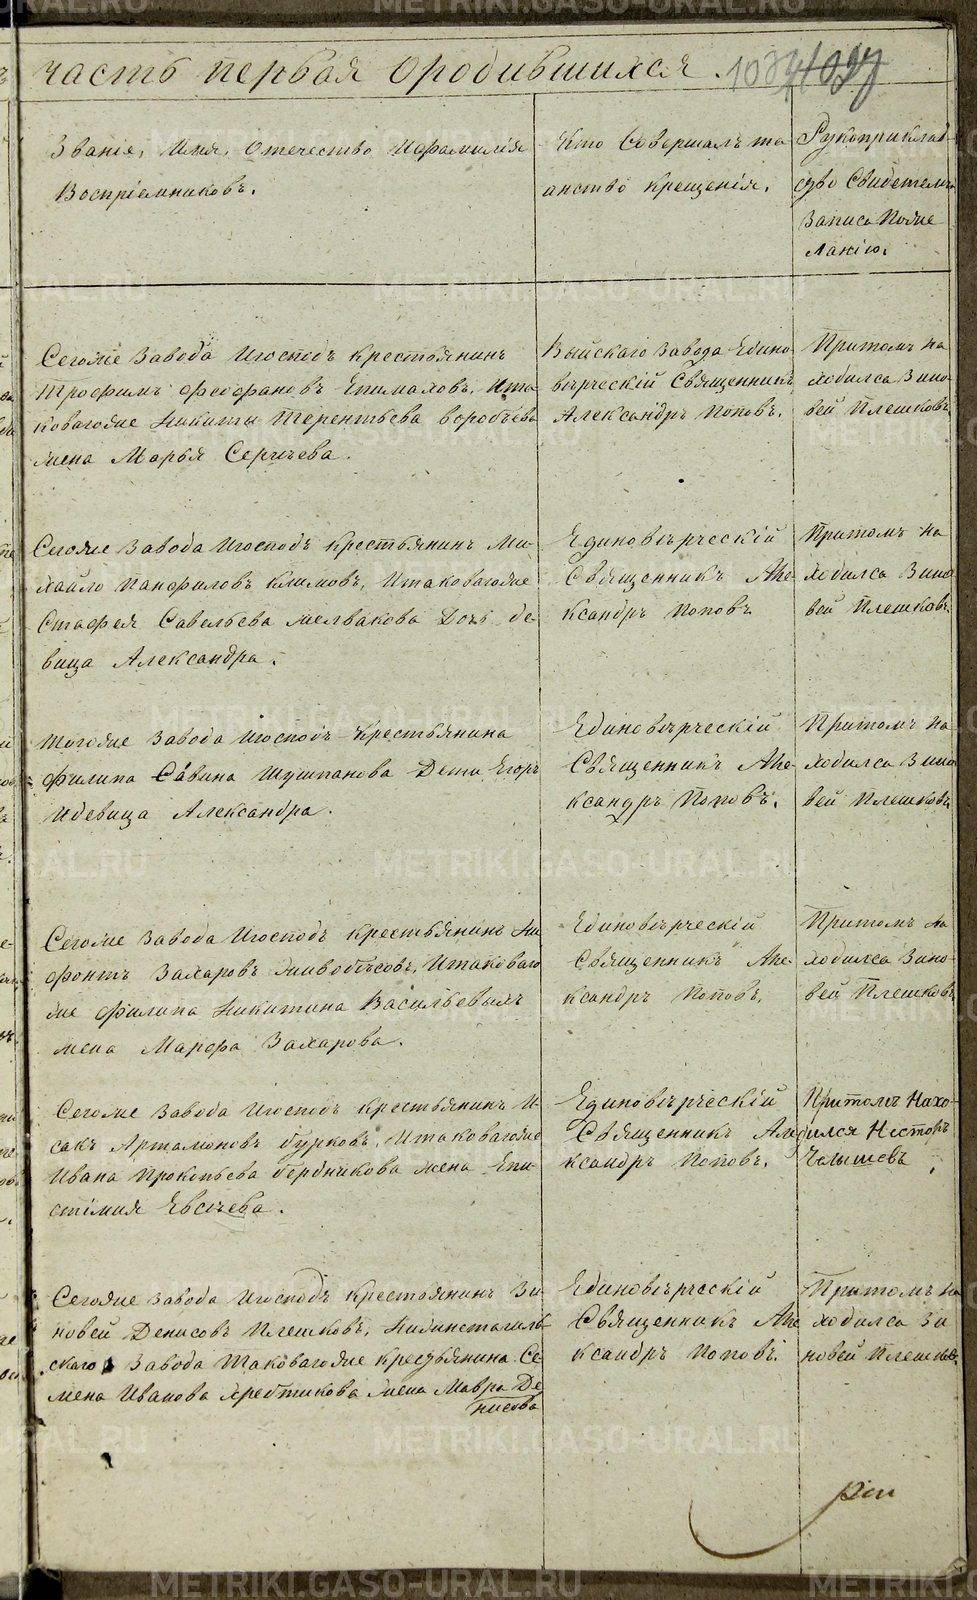 часть первая ородившихся.
Званіе, Имя, Отечество Ифамилія
Воспріемниковъ.
Кто Совершалъ та
инство крещенія.
Рукоприклад
ство Свидетелей
Записи Поже
ланію.
Сегоже Завода Игоспод. крестьянинъ
Трофимъ Феофановъ Епимаховъ, Ита
ковагоже Никиты Терентьева Воробьева
жена Марья Сергичева.
Выйскаго Завода Едино
вѣрческій Священникъ
Александръ Поповъ.
Притомъ на
ходился Зино
вей Плешковъ
Сегоже Завода Игоспод. крестьянинъ Ми
хайло Панфиловъ Климовъ, Итаковагоже
Стафея Савельева Дочь де
вица Александра.
Единовѣрческій
Священникъ Але
ксандръ Поповъ
Притомъ на
ходился Зино
вей Плешковъ
Тогоже Завода Игоспод. Крестьянина
Филипа Савина Шушпанова Дети Егоръ
Идевица Александра.
Единовѣрческій
Священникъ Але
ксандръ Поповъ.
Притомъ на
ходился Зино
вей Плешковъ
Сегоже Завода Игоспод. крестьянинъ Ни
фонтъ Захаровъ Итаковаго
же Филипа Никитина Васильевыхъ
жена Марфа Захарова.
Единовѣрческій
Священникъ Але
ксандръ Поповъ.
Притомъ на
ходился Зино
вей Плешковъ
Сегоже Завода Игоспод. крестьянинъ И
сакъ Артамоновъ Бурковъ, Итаковагоже
Ивана Прокопьева Бердникова жена Епи
стимия Евсичева.
Единовѣрческій
Священникъ Але
ксандръ Поповъ.
Притомъ Нахо
дился Несторъ
Челышевъ
Сегоже Завода Игоспод. Крестьянинъ Зи
новей Денисовъ Плешковъ, Нижнетагиль
скаго Завода Таковагоже Крестьянина Се
мена Иванова Хребтикова жена Мавра Де
нисова
Единовѣрческій
Священникъ Але
ксандръ Поповъ.
Притомъ на
ходился Зи
новей Плешков
METRIKI.GASO-URAL.RU